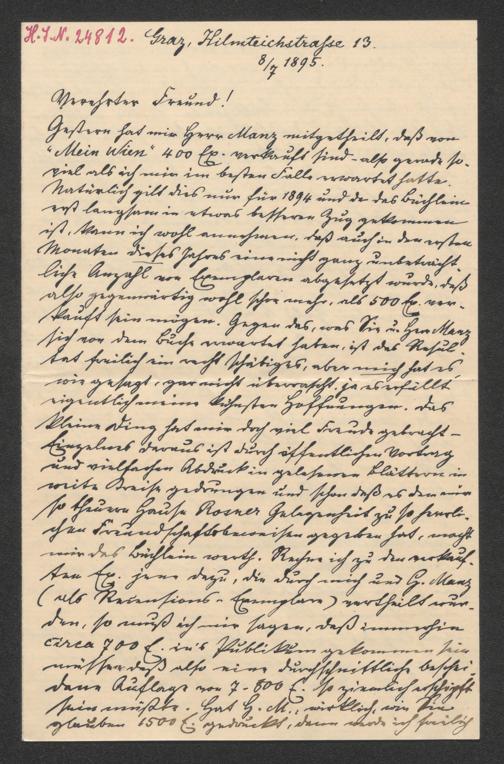 H.I.N. 24812. Graz, Hilmteichstrasse 13.
8/7 1895.
Verehrter Freund!
Gestern hat mir Herr Manz mitgetheilt, daß von
"Mein Wien" 400 Ex. verkauft sind - also gerade so-
viel als ich mir im besten Falle erwartet hatte.
Natürlich gilt dies nur für 1894 und da das Büchlein
erst langsam in etwas besseren Zug gekommen
ist, kann ich wohl annehmen, daß auch in den ersten
Monaten dieses Jahres eine nicht ganz unbeträcht-
liche Anzahl von Exemplaren abgesetzt wurde, daß
also gegenwärtig wohl schon mehr, als 500 Ex. ver-
kauft sein mögen. Gegen das, was Sie u. Herr Manz
sich von dem Buche erwartet haben, ist das Resul-
tat freilich ein recht schäbiges, aber mich hat es
wie gesagt, gar nicht überrascht, ja es erfüllt
eigentlich meine kühnsten Hoffnungen. Das
kleine Ding hat mir doch viel Freude gebracht -
Einzelnes daraus ist durch öffentlichen Vortrag
und vielfachen Abdruck in gelesenen Blättern in
weite Kreise gedrungen und schon daß es dem mir
so theuren Hause Rosner Gelegenheit zu so herrli-
chen Freundschaftsbeweisen gegeben hat, macht
mir das Büchlein werth. Rechne ich zu den verkauf-
ten Ex. jene dazu, die durch mich und H. Manz
(als Recensions-Exemplare) vertheilt wur-
den, so muß ich mir sagen, daß immerhin
circa 700 E. in's Publikum gekommen sein
müssen, daß also eine durchschnittliche beschei-
dene Auflage von 7-800 E. so ziemlich erschöpft
sein müßte. Hat H. M., wirklich, wie Sie
glauben 1500 E. gedruckt, dann werde ich freilich